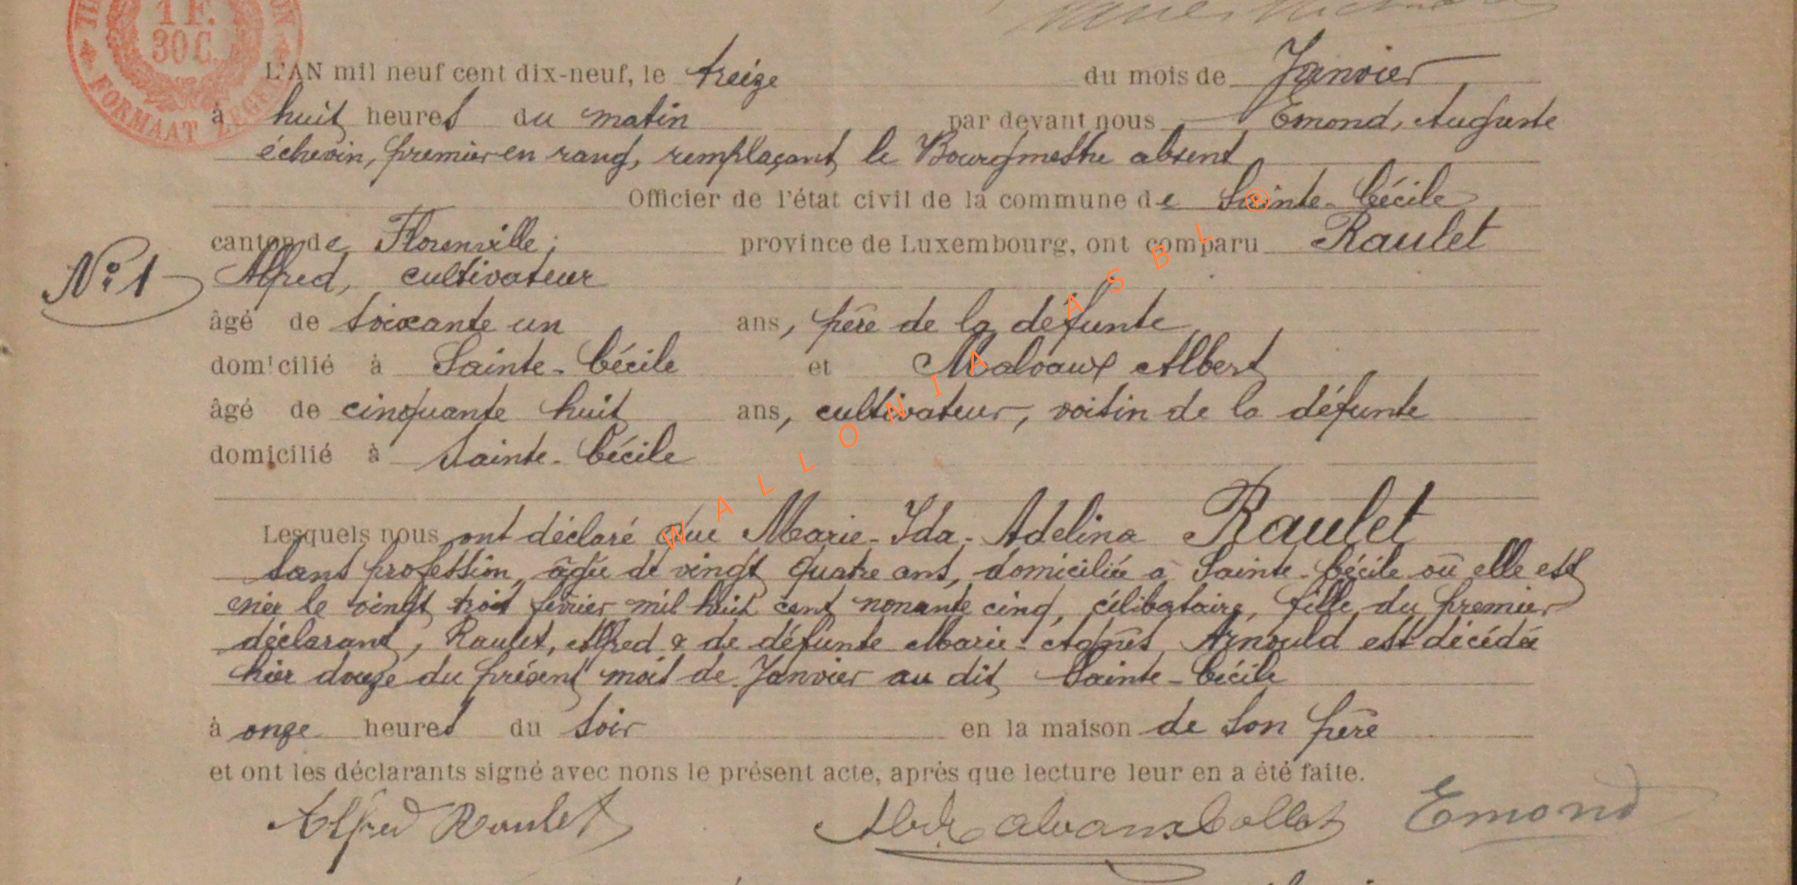 1 F.
30 C.
FORMAAT ZEGEL
L'AN mil neuf cent dix-neuf, le treize du mois de Janvier
à huit heures du matin par devant nous Emond, Auguste
échevin, premier en rang, remplaçant le Bourgmestre absent
Officier de l'état civil de la commune de Sainte-Cécile
canton de Florenville, province de Luxembourg, ont comparu Raulet
N° 1
Alfred, cultivateur
âgé de soixante un ans, père de la défunte
domicilié à Sainte-Cécile et Malvaux Albert
âgé de cinquante huit ans, cultivateur, voisin de la défunte
domicilié à Sainte-Cécile
WALLONIA ASBL ®
Lesquels nous ont déclaré que Marie-Ida-Adelina Raulet
sans profession, âgée de vingt quatre ans, domiciliée à Sainte-Cécile où elle est
née le vingt trois février mil huit cent nonante cinq, célibataire, fille du premier
déclarant, Raulet, Alfred & de défunte Marie-Agnès Arnould est décédée
hier douze du présent mois de Janvier au dit Sainte-Cécile
à onze heures du soir en la maison de son père
et ont les déclarants signé avec nons le présent acte, après que lecture leur en a été faite.
Alfred Raulet Emond